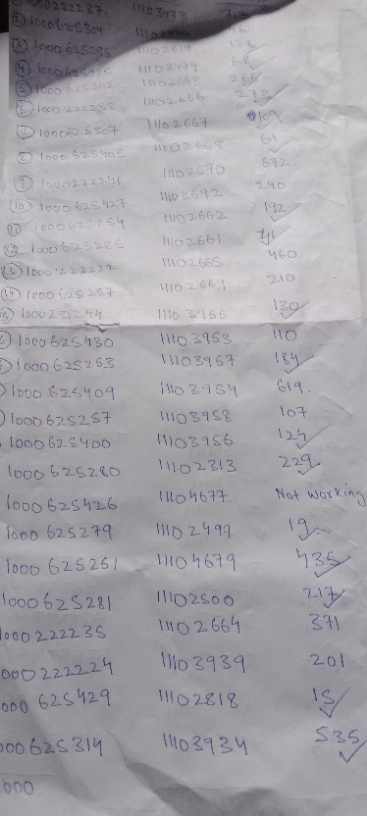 1000222237 11103473
② 1000625304
③ 1000625295 11102819 128
④ 1000625425 11103479 68
⑤ 1000625302 11102663 266
⑥ 1000222238 11102666 278
⑦ 1000625307 11102667 109
⑧ 1000625405 11102668 61
⑨ 1000222241 11102670 672.
⑩ 1000625427 11103692 240
⑪ 11102662 192
⑫ 1000625285 11102661 71
⑬ 1000222222 11102665 460
⑭ 1000625257 11102669 210
1000231244 11103965 130
1000625430 11103953 110
1000625263 11103967 184
1000625409 11103954 619.
1000625257 11103958 107
1000625400 11103956 124
1000625280 11102813 229
1000625426 11104677 Not working
1000625279 11102499 19
1000625261 11104679 435
1000625281 11102500 217
1000222235 11102664 371
1000222224 11103939 201
000625429 11102818 15
000625314 11103934 535
000